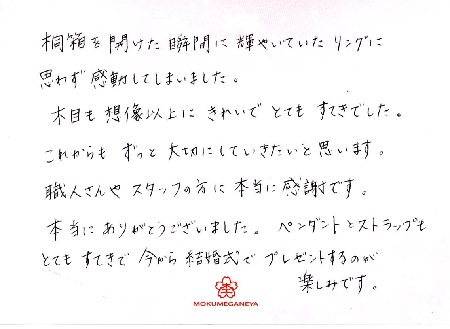 桐箱を開けた瞬間に輝やいていたリングに
思わず感動してしまいました。
木目も想像以上にきれいでとてもすてきでした。
これからもずっと大切にしていきたいと思います。
職人さんやスタッフの方に本当に感謝です。
本当にありがとうございました。ペンダントとストラップも
とてもすてきで今から結婚式でプレゼントするのが
楽しみです。
MOKUMEGANEYA